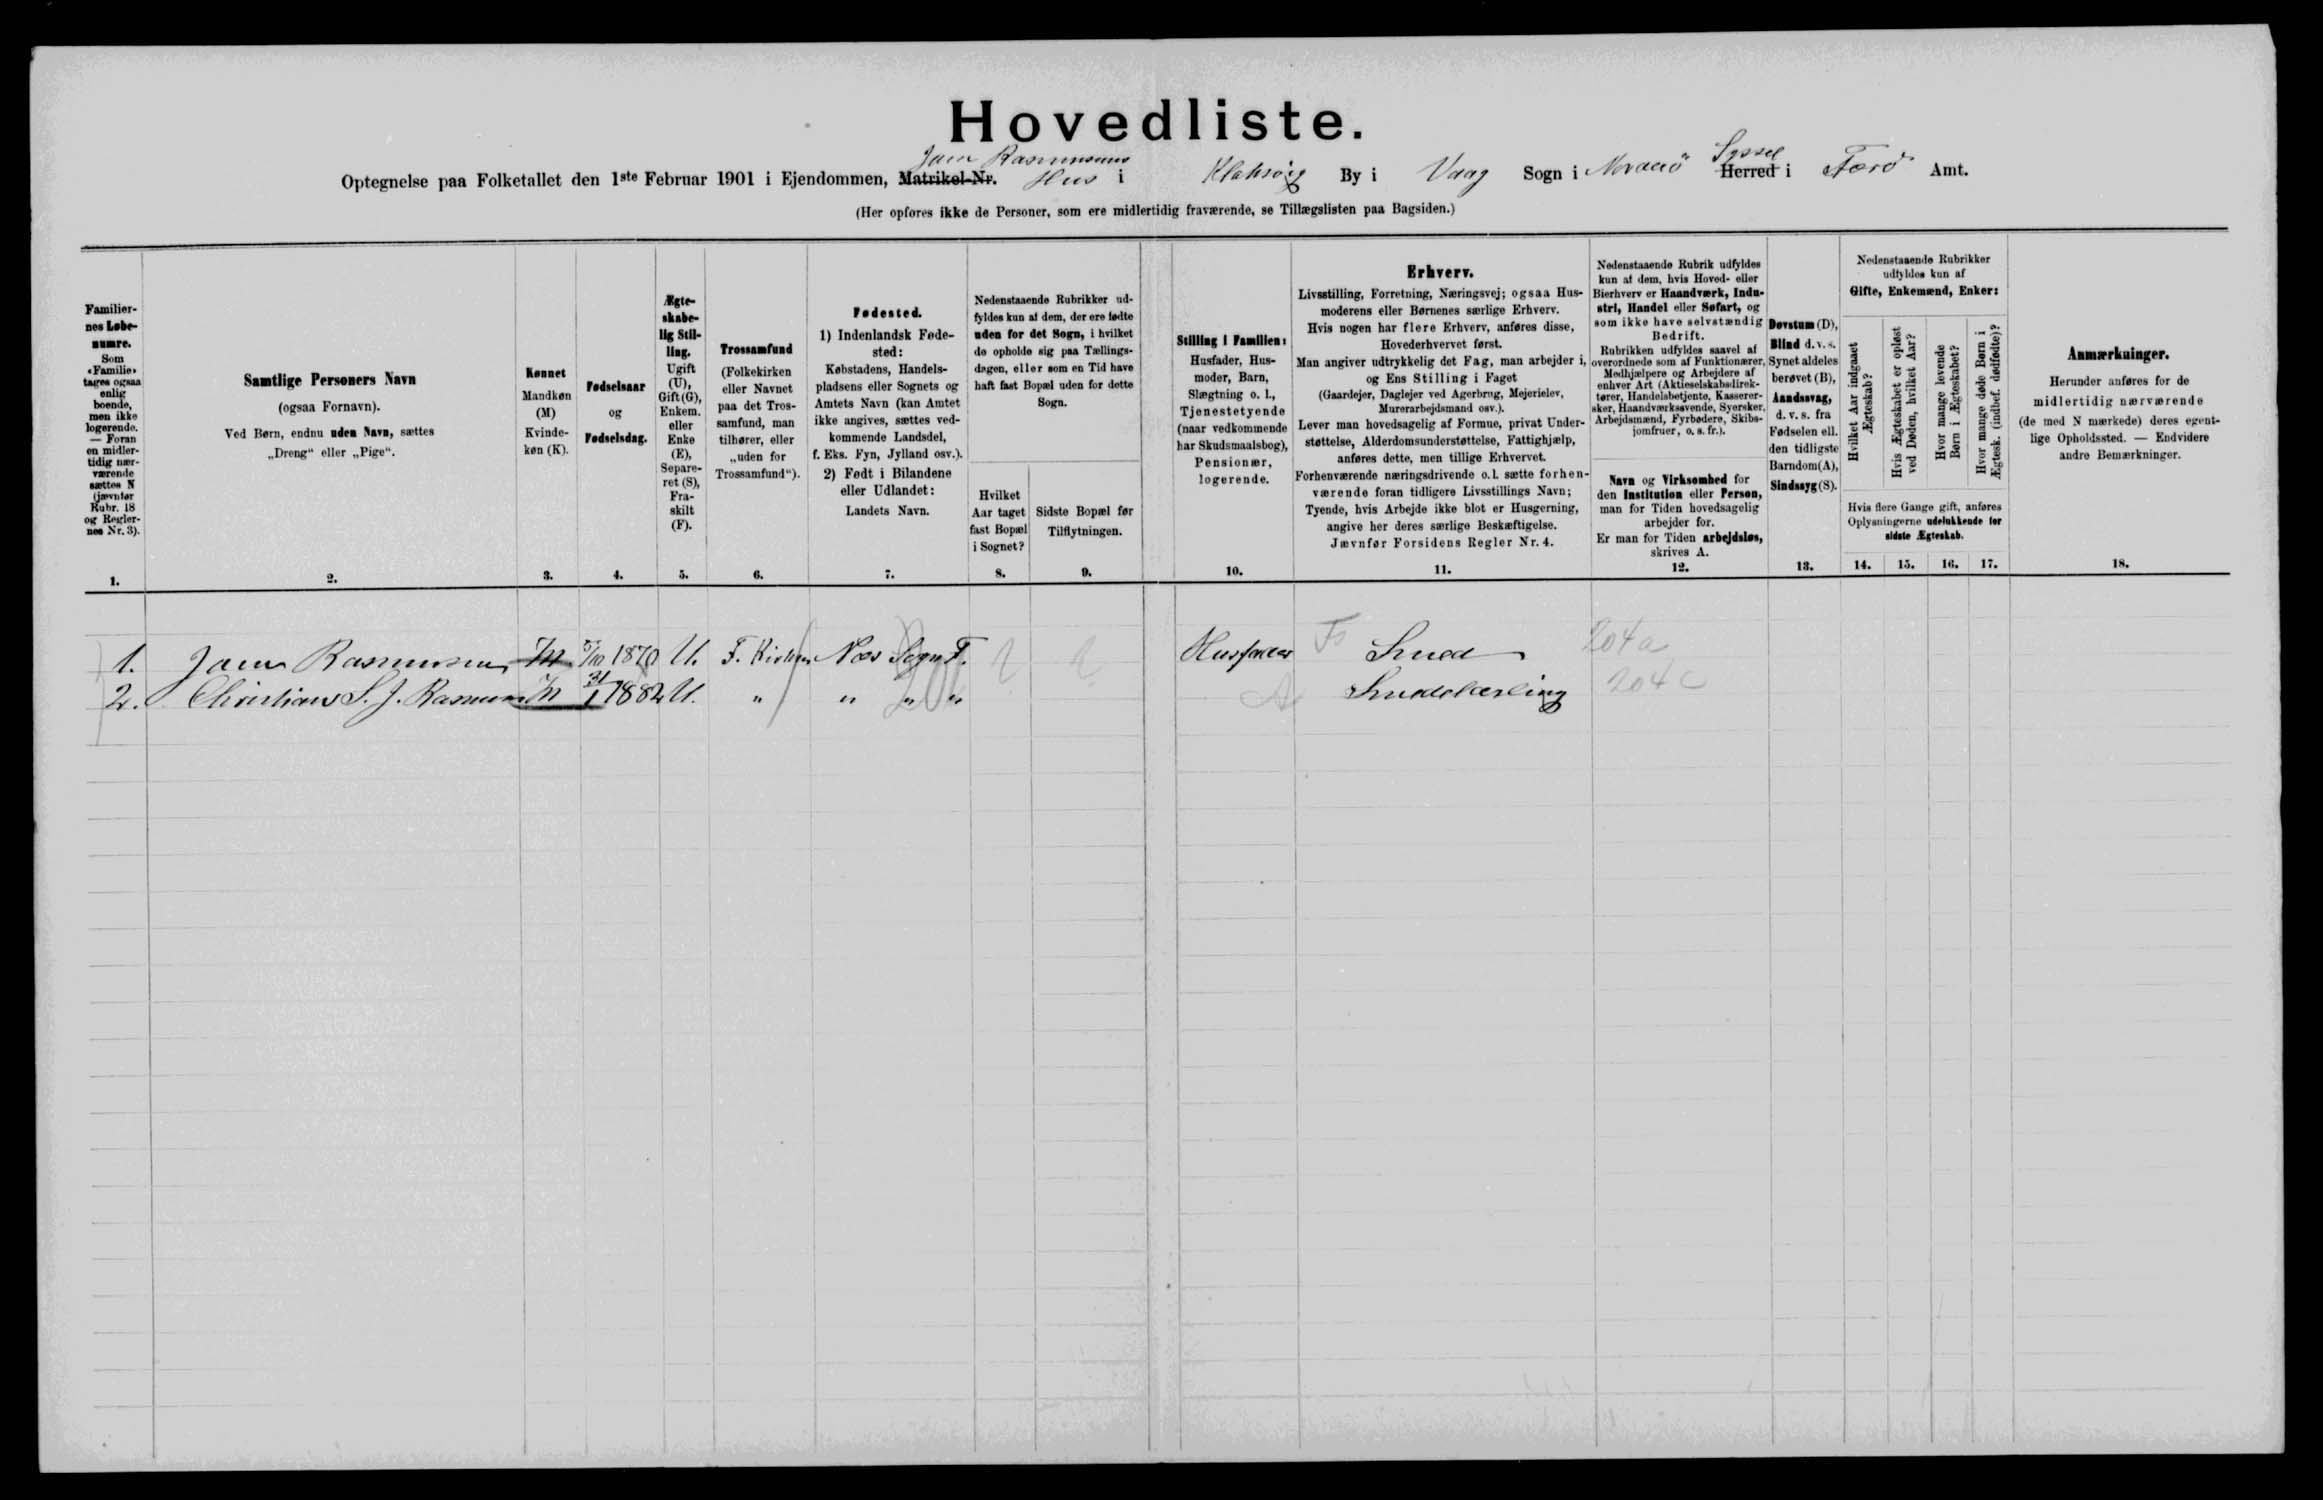 Hovedliste.
Joen Rasmussens Syssel
Optegnelse paa Folketallet den 1ste Februar 1901 i Ejendommen, Matrikel-Nr. Hus i Klaksvig By i Vaag Sogn i Norderö Herred i Færö Amt.
(Her opføres ikke de Personer, som ere midlertidig fraværende, se Tillægslisten paa Bagsiden.)
Familiernes Løbenumre.
Som «Familie» tages ogsaa enlig boende, men ikke logerende. — Foran en midlertidig nærværende sættes N (jævnfør Rubr. 18 og Reglernes Nr. 3).
1.
Samtlige Personers Navn
(ogsaa Fornavn).
Ved Børn, endnu uden Navn, sættes
„Dreng“ eller „Pige“.
2.
Kønnet
Mandkøn
(M)
Kvinde-
køn (K).
3.
Fødselsaar
og
Fødselsdag.
4.
Ægte-
skabe-
lig Stil-
ling.
Ugift
(U),
Gift (G),
Enkem.
eller
Enke
(E),
Separe-
ret (S),
Fra-
skilt
(F).
5.
Trossamfund
(Folkekirken
eller Navnet
paa det Tros-
samfund, man
tilhører, eller
„uden for
Trossamfund“).
6.
Fødested.
1) Indenlandsk Føde-
sted:
Købstadens, Handels-
pladsens eller Sognets og
Amtets Navn (kan Amtet
ikke angives, sættes ved-
kommende Landsdel,
f. Eks. Fyn, Jylland osv.).
2) Født i Bilandene
eller Udlandet:
Landets Navn.
7.
Nedenstaaende Rubrikker ud-
fyldes kun af dem, der ere fødte
uden for det Sogn, i hvilket
de opholde sig paa Tællings-
dagen, eller som en Tid have
haft fast Bopæl uden for dette
Sogn.
Hvilket
Aar taget
fast Bopæl
i Sognet?
8.
Sidste Bopæl før
Tilflytningen.
9.
Stilling i Familien:
Husfader, Hus-
moder, Barn,
Slægtning o. l.,
Tjenestetyende
(naar vedkommende
har Skudsmaalsbog),
Pensionær,
logerende.
10.
Erhverv.
Livsstilling, Forretning, Næringsvej; ogsaa Hus-
moderens eller Børnenes særlige Erhverv.
Hvis nogen har flere Erhverv, anføres disse,
Hovederhvervet først.
Man angiver udtrykkelig det Fag, man arbejder i,
og Ens Stilling i Faget
(Gaardejer, Daglejer ved Agerbrug, Mejerielev,
Murerarbejdsmand osv.).
Lever man hovedsagelig af Formue, privat Under-
støttelse, Alderdomsunderstøttelse, Fattighjælp,
anføres dette, men tillige Erhvervet.
Forhenværende næringsdrivende o. l. sætte forhen-
værende foran tidligere Livsstillings Navn;
Tyende, hvis Arbejde ikke blot er Husgerning,
angive her deres særlige Beskæftigelse.
Jævnfør Forsidens Regler Nr. 4.
11.
Nedenstaaende Rubrik udfyldes
kun af dem, hvis Hoved- eller
Bierhverv er Haandværk, Indu-
stri, Handel eller Søfart, og
som ikke have selvstændig
Bedrift.
Rubrikken udfyldes saavel af
overordnede som af Funktionærer,
Medhjælpere og Arbejdere af
enhver Art (Aktieselskabsdirek-
tører, Handelsbetjente, Kasserer-
sker, Haandværkssvende, Syersker,
Arbejdsmænd, Fyrbødere, Skibs-
jomfruer, o. s. fr.).
Navn og Virksomhed for
den Institution eller Person,
man for Tiden hovedsagelig
arbejder for.
Er man for Tiden arbejdsløs,
skrives A.
12.
Døvstum (D),
Blind d. v. s.
Synet aldeles
berøvet (B),
Aandssvag,
d. v. s. fra
Fødselen ell.
den tidligste
Barndom (A),
Sindssyg (S).
13.
Nedenstaaende Rubrikker
udfyldes kun af
Gifte, Enkemænd, Enker:
Hvilket Aar indgaaet
Ægteskab?
Hvis Ægteskabet er opløst
ved Døden, hvilket Aar?
Hvor mange levende
Børn i Ægteskabet?
Hvor mange døde Børn i
Ægtesk. (indbef. dødfødte)?
Hvis flere Gange gift, anføres
Oplysningerne udelukkende for
sidste Ægteskab.
14. 15. 16. 17.
Anmærkninger.
Herunder anføres for de
midlertidig nærværende
(de med N mærkede) deres egent-
lige Opholdssted. — Endvidere
andre Bemærkninger.
18.
1. Joen Rasmussen M 5/10 1870 U. F. Kirken Næs Sogn F. Husfader Fs Smed 204a
2. Christian S. J. Rasmussen M 31/1 1882 U. „ „ „ „ A Smedelærling 204c